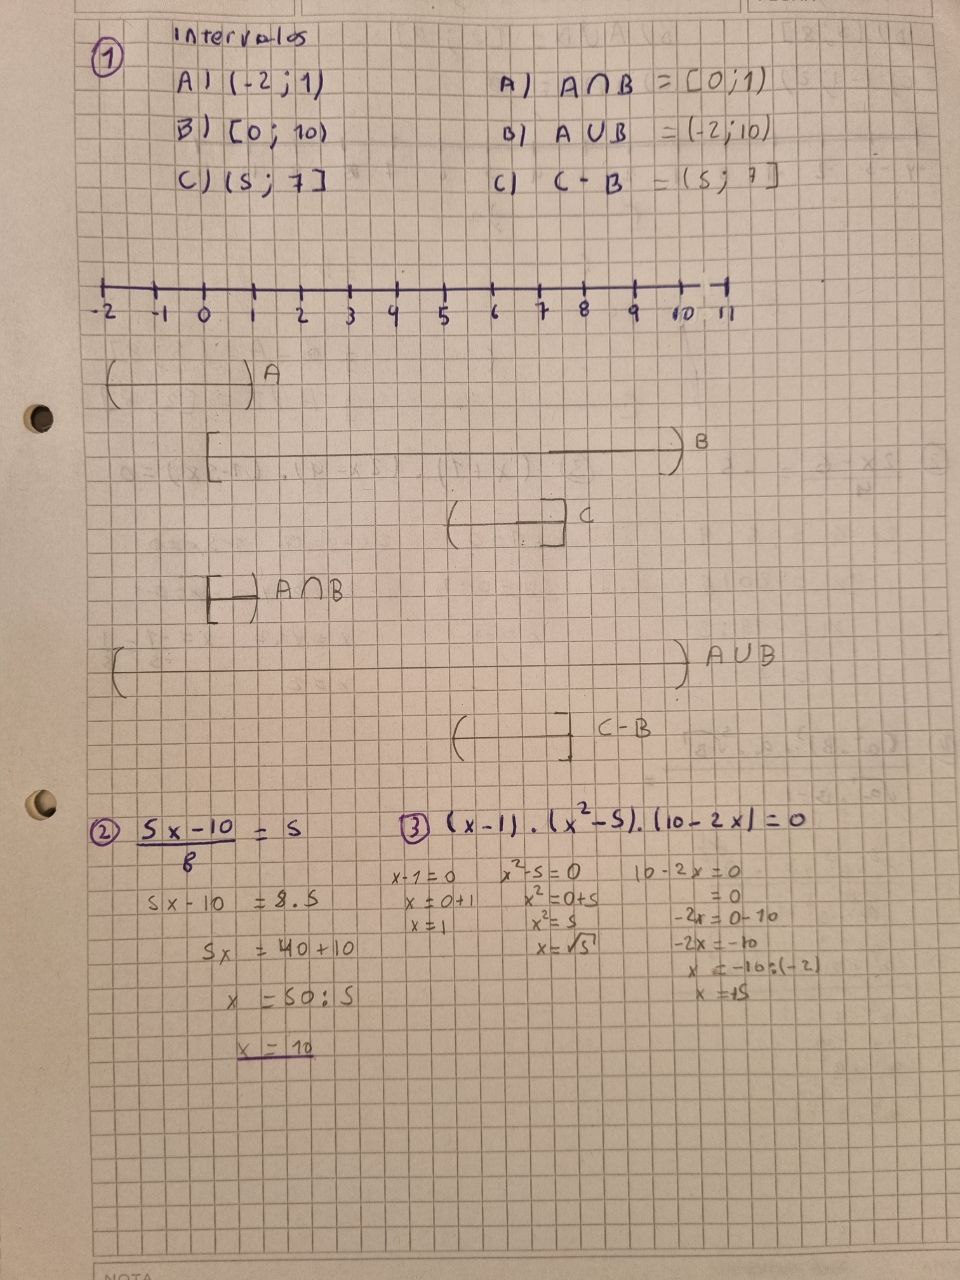 ① Intervalos
A) (-2 ; 1)
B) [0 ; 10)
C) (5 ; 7]
A) A∩B = [0;1)
B) A∪B = (-2;10)
C) C - B = (5; 7]
-2 -1 0 1 2 3 4 5 6 7 8 9 10 11
A
B
C
A∩B
A∪B
C-B
② 5x-10 = 5
8
5x-10 = 8.5
5x = 40+10
x = 50:5
x = 10
③ (x-1).(x²-5).(10-2x)=0
x-1=0
x=0+1
x=1
x²-5=0
x²=0+5
x²=5
x=√5
10-2x=0
=0
-2x=0-10
-2x=-10
x =-10:(-2)
x =+5
NOTA